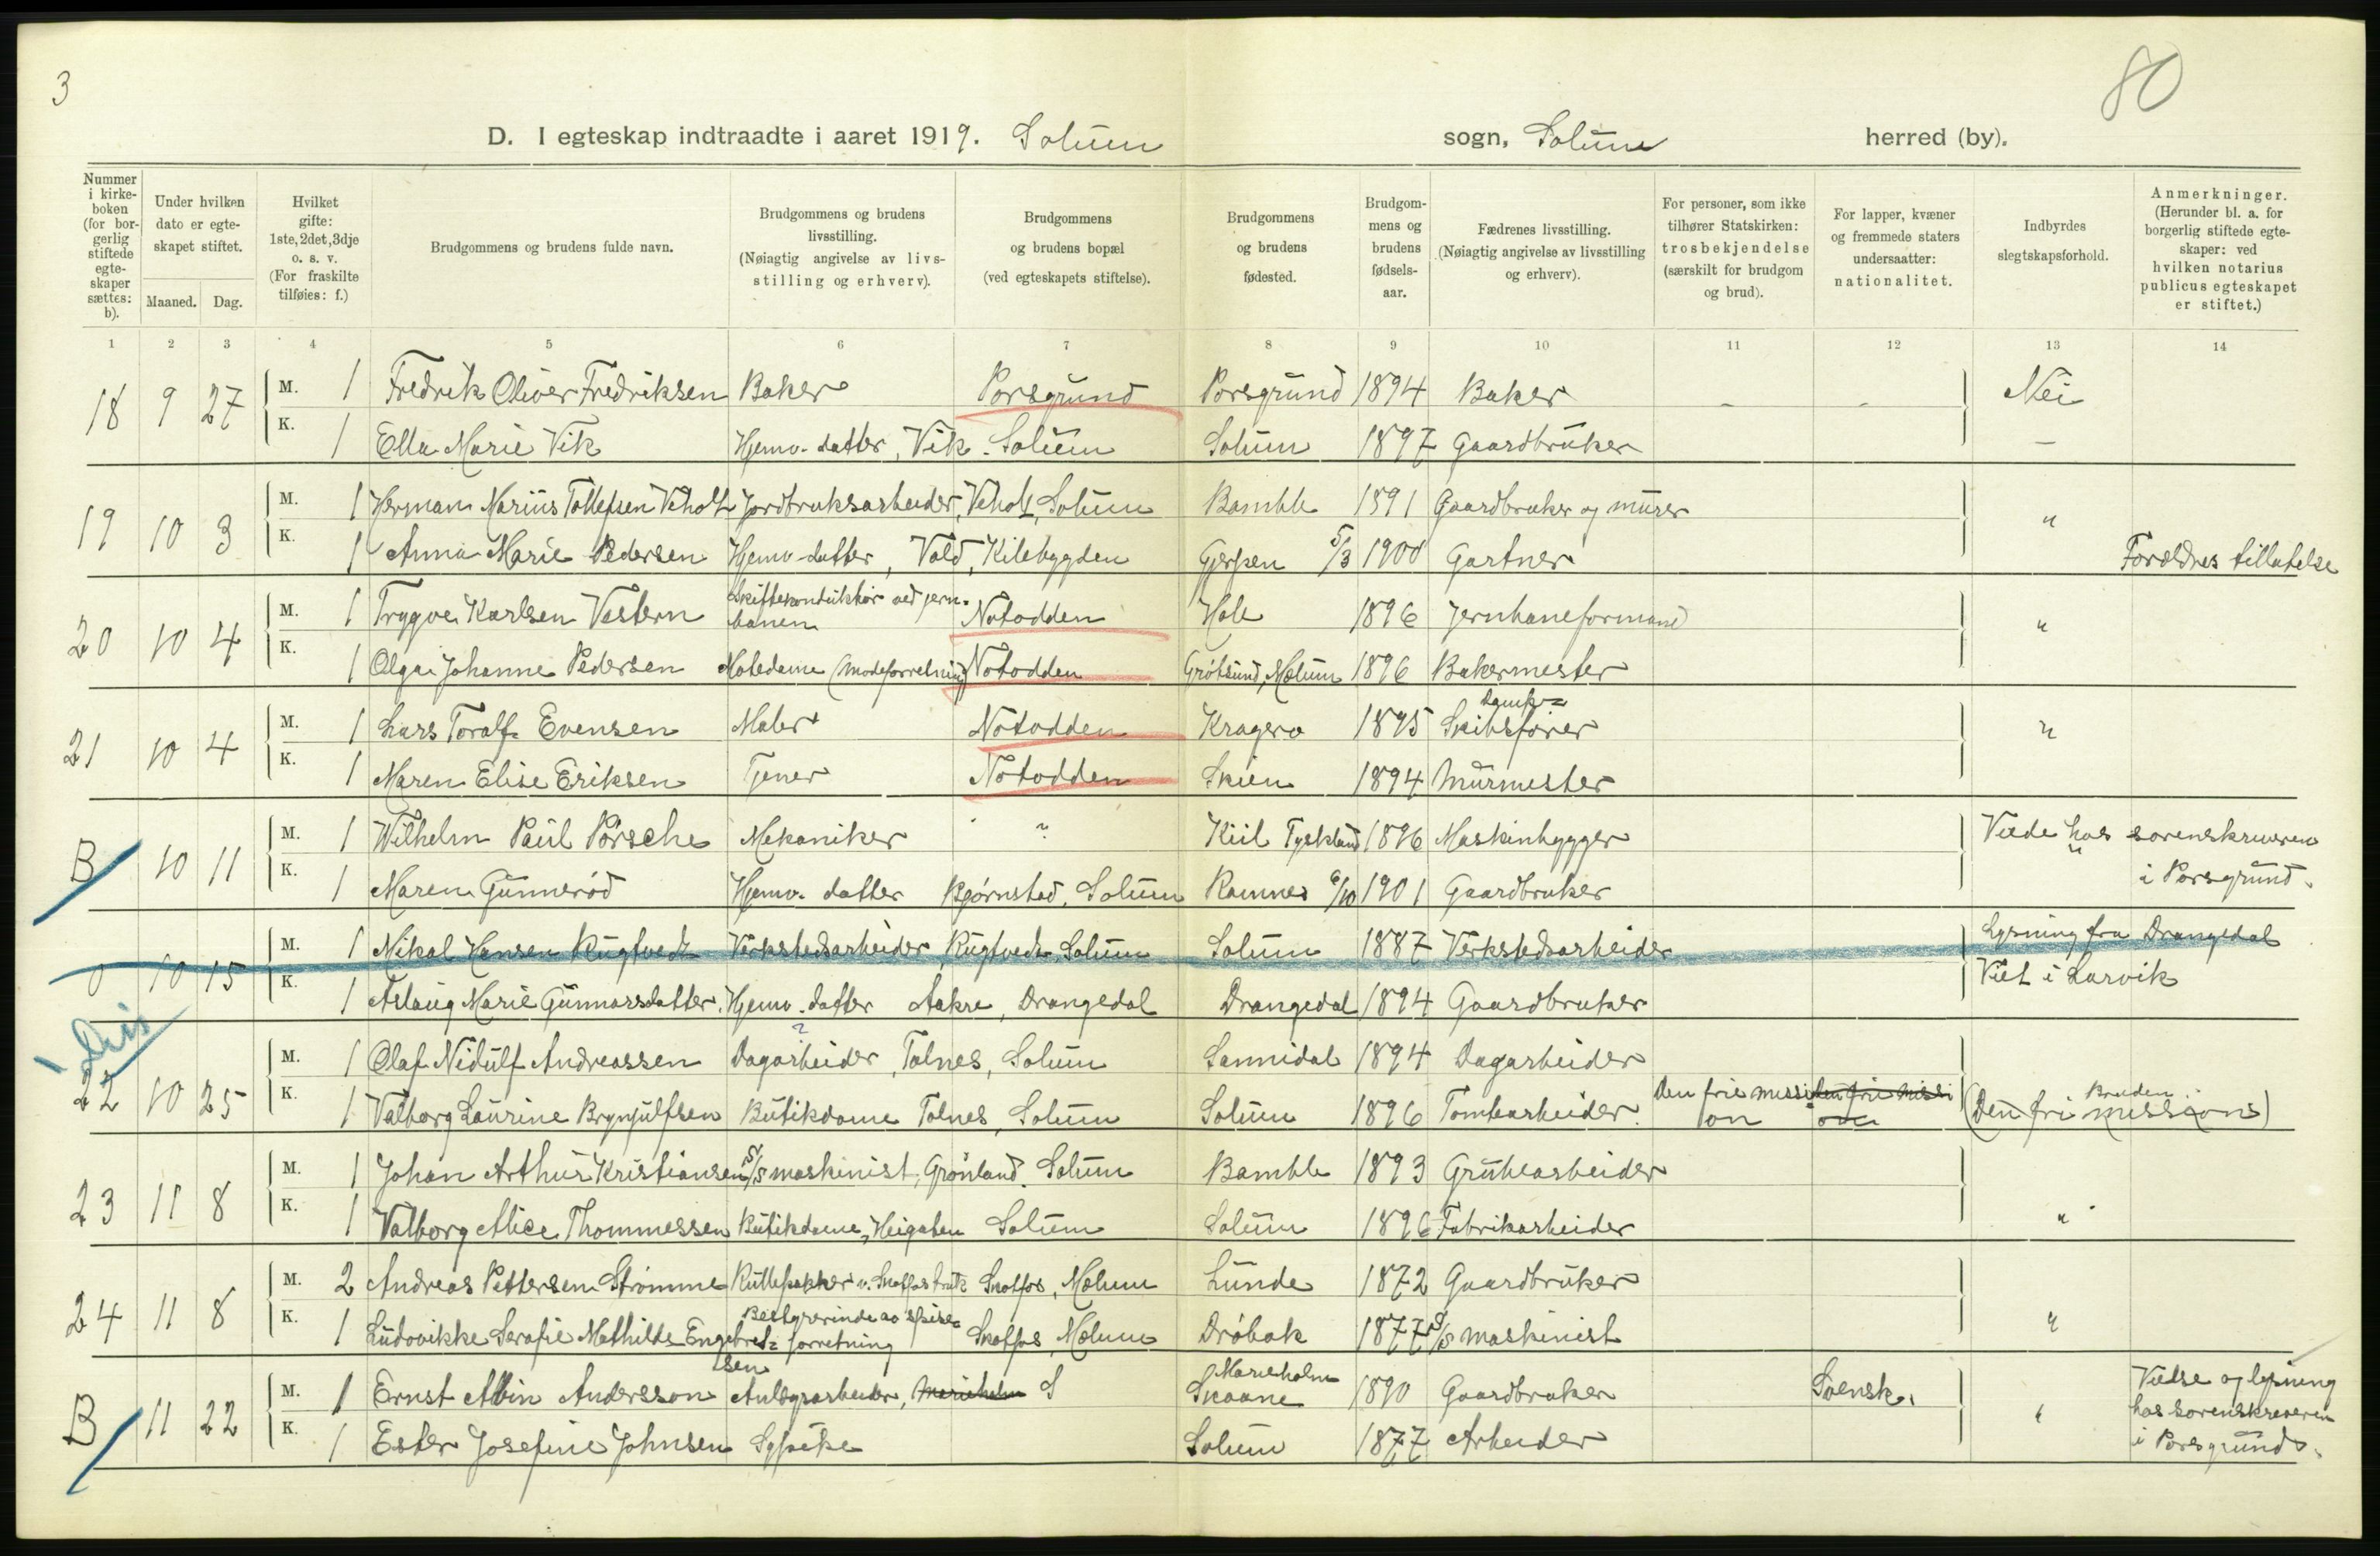 3
80
D. I egteskap indtraadte i aaret 1919. Solum sogn, Solum herred (by).
Nummer i kirkeboken (for borgerlig stiftede egteskaper sættes: b).
Under hvilken dato er egteskapet stiftet.
Maaned. Dag.
Hvilket gifte: 1ste, 2det, 3dje o. s. v. (For fraskilte tilføies: f.)
Brudgommens og brudens fulde navn.
Brudgommens og brudens livsstilling. (Nøiagtig angivelse av livsstilling og erhverv).
Brudgommens og brudens bopæl (ved egteskapets stiftelse).
Brudgommens og brudens fødested.
Brudgommens og brudens fødselsaar.
Fædrenes livsstilling. (Nøiagtig angivelse av livsstilling og erhverv).
For personer, som ikke tilhører Statskirken: trosbekjendelse (særskilt for brudgom og brud).
For lapper, kvæner og fremmede staters undersaatter: nationalitet.
Indbyrdes slegtskapsforhold.
Anmerkninger. (Herunder bl. a. for borgerlig stiftede egteskaper: ved hvilken notarius publicus egteskapet er stiftet.)
1 2 3 4 5 6 7 8 9 10 11 12 13 14
18 9 27 M. 1 Fredrik Oliver Fredriksen Baker Porsgrund Porsgrund 1894 Baker - - Nei
K. 1 Ella Marie Vik Hjemv. datter, Vik. Solum Solum 1897 Gaardbruker -
19 10 3 M. 1 Herman Marius Tollefsen Vekolt Jordbruksarbeider, Vekolt, Solum Bamble 1891 Gaardbruker og murer "
K. 1 Anna Marie Pedersen Hjemv. datter, Vold, Kilebygden Gjerpen 5/3 1900 Gartner Forældres tillatelse
20 10 4 M. 1 Trygve Karlsen Vestern Skiftekonduktør ved jernbanen Notodden Hole 1896 Jernbaneformand "
K. 1 Olga Johanne Pedersen Motedame (Modeforretning) Notodden Grötsund, Mælum 1896 Bakermester
21 10 4 M. 1 Lars Toralf Evensen Maler Notodden Kragerø 1895 Dampskibsfører "
K. 1 Maren Elise Eriksen Tjener Notodden Skien 1894 Murmester
B 10 11 M. 1 Wilhelm Paul Pörsche Mekaniker " Kiel Tyskland 1896 Maskinbygger Viede hos sorenskriveren
K. 1 Maren Gunnerød Hjemv. datter Bjørnstad, Solum Ramnes 6/10 1901 Gaardbruker " i Porsgrund.
0 10 15 M. 1 Nikal Hansen Rugtvedt Verkstedsarbeider, Rugtvedt, Solum Solum 1887 Verkstedsarbeider Lysning fra Drangedal
K. 1 Aslaug Marie Gunnarsdatter. Hjemv. datter Aakre, Drangedal Drangedal 1894 Gaardbruker Viet i Larvik
22 10 25 M. 1 Olaf Nidulf Andreassen Dagarbeider, Tolnes, Solum Sannidal 1894 Dagarbeider
K. 1 Valborg Laurine Brynjulfsen Butikdame Tolnes, Solum Solum 1896 Tomtearbeider. Den frie mission den frie mission Bruden (Den fri missions)
23 11 8 M. 1 Johan Arthur Kristiansen S/S maskinist, Grønland. Solum Bamble 1893 Grubearbeider
K. 1 Valborg Alice Thommessen Butikdame, Heigaten Solum Solum 1896 Fabrikarbeider "
24 11 8 M. 2 Andreas Pettersen Strømme Rullepakker v. Skotfos bruk Skotfos, Mælum Lunde 1872 Gaardbruker
K. 1 Ludovikke Serafie Mathilde Engebretsen Bestyrerinde av spiseforretning Skotfos, Mælum Drøbak 1877 S/S maskinist "
B 11 22 M. 1 Ernst Albin Andersson Anlægsarbeider, Marieholm S Marieholm Skaane 1890 Gaardbruker Svensk. Vielse og lysning
K. 1 Ester Josefine Johnsen Sypike Solum 1877 Arbeider " hos sorenskriveren
i Porsgrund.